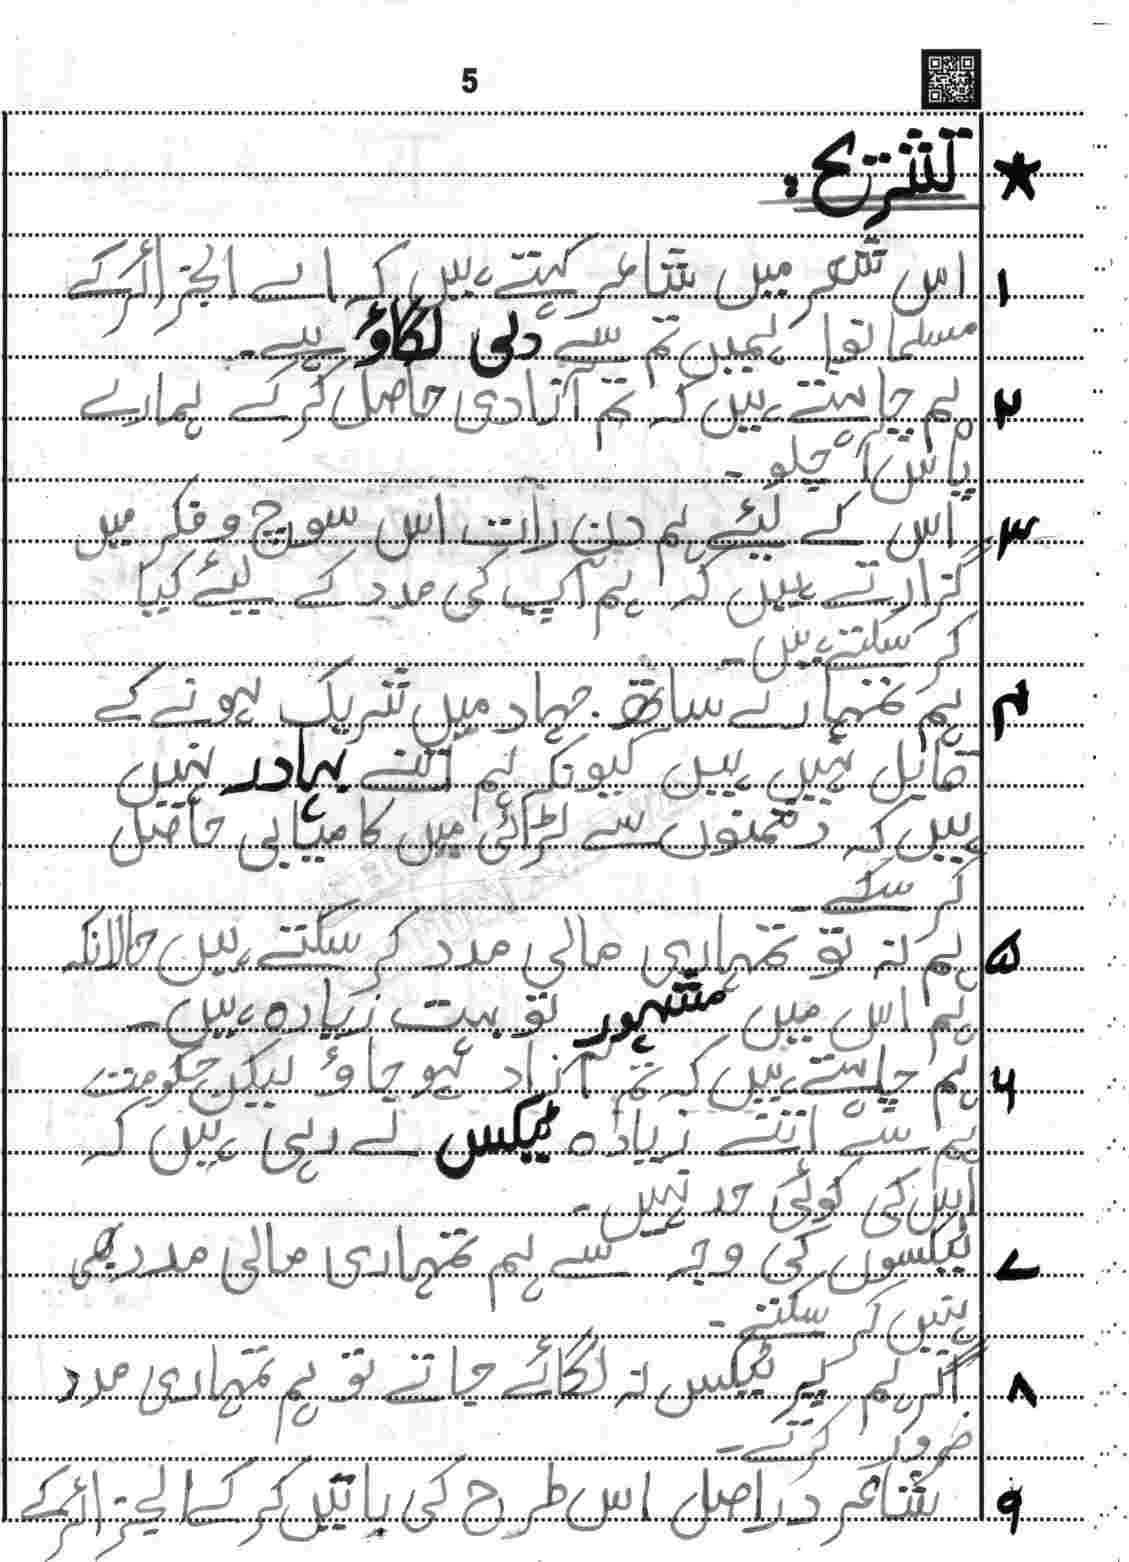 5
★ تشریح:
۱ اس شعر میں شاعر کہتے ہیں کہ اے الجزائر کے
مسلمانوا ہمیں تم سے دلی لگاؤ ہے۔
۲ ہم چاہتے ہیں کہ تم آزادی حاصل کرکے ہمارے
پاس آ چلو۔
۳ اس کے لیئے ہم دن رات اس سوچ و فکر میں
گزارتے ہیں کہ ہم آپ کی مدد کے لیئے کیا
کر سکتے ہیں۔
۴ ہم تمہارے ساتھ جہاد میں شریک ہونے کے
قابل نہیں ہیں کیونکہ ہم اتنے بہادر نہیں
ہیں کہ دشمنوں سے لڑائی میں کامیابی حاصل
کر سکے۔
۵ ہم نہ تو تمہاری مالی مدد کر سکتے ہیں حالانکہ
ہم اس میں مشہور تو بہت زیادہ ہیں۔
۶ ہم چاہتے ہیں کہ تم آزاد ہو جاؤ لیکن حکومت
ہم سے اتنے زیادہ ٹیکس لے رہی ہیں کہ
اس کی کوئی حد نہیں۔
۷ ٹیکسوں کی وجہ سے ہم تمہاری مالی مدد بھی
نہیں کر سکتے۔
۸ اگر ہم پر ٹیکس نہ لگائے جاتے تو ہم تمہاری مدد
ضرور کرتے۔
۹ شاعر دراصل اس طرح کی باتیں کر کے الجزائر کے